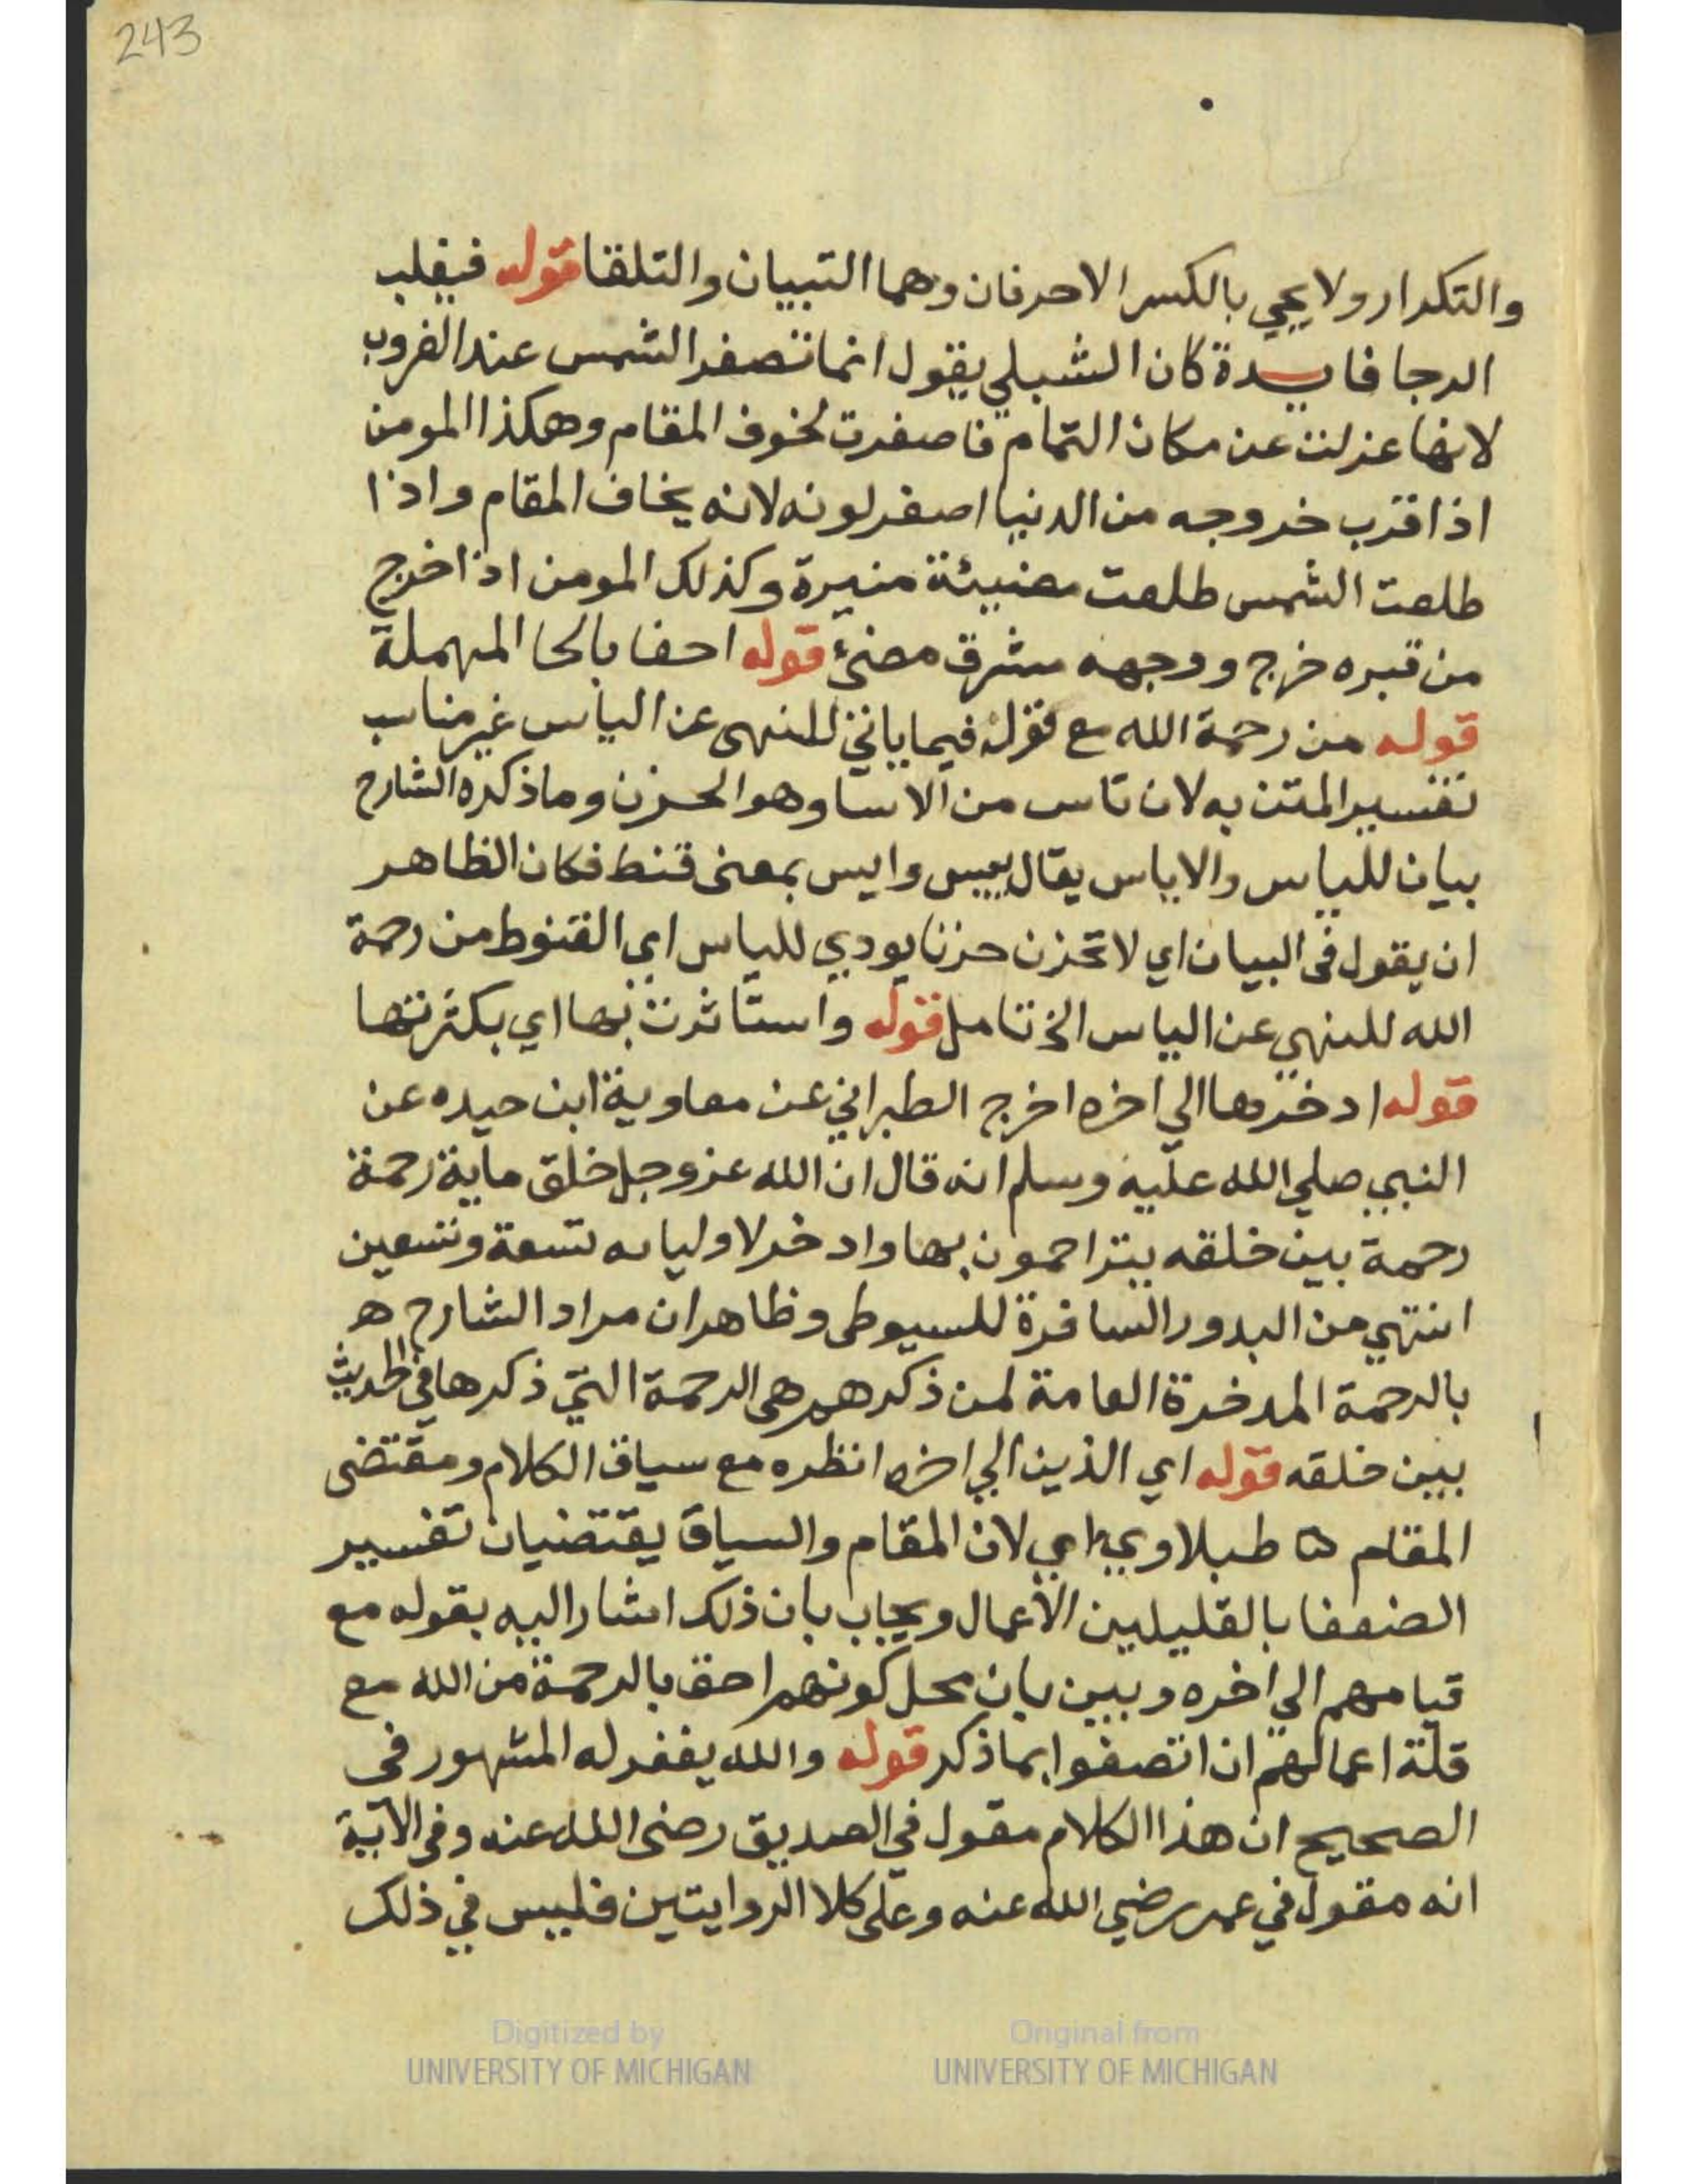 243
والتكدار ولا يجي بالكسر الا حرفان وهما التبيان والتلقا قوله فيغلب
الرجا فايدة كان الشبلي يقول انما تصفر الشمس عند الغروب
لانها عزلت عن مكان التمام فاصفرت لخوف المقام وهكذا المومن
اذا قرب خروجه من الدنيا اصفر لونه لانه يخاف المقام واذا
طلعت الشمس طلعت مضيئة منيرة وكذلك المومن اذا خرج
من قبره خرج ووجهه مشرق مضئ قوله احفا بالحا المهملة
قوله من رحمة الله مع قوله فيما ياتي للنهي عن الياس غير مناسب
تفسير المتن به لان تاس من الاسا وهو الحزن وما ذكره الشارح
بيان للياس والاياس يقال ييس وايس بمعنى قنط فكان الظاهر
ان يقول في البيان اي لا تحزن حزنا يودي للياس اي القنوط من رحمة
الله للنهي عن الياس الخ تامل قوله واستاثرت بها اي بكثرتها
قوله ادخرها الي اخره اخرج الطبراني عن معاوية ابن حيده عن
النبي صلي الله عليه وسلم انه قال ان الله عز وجل خلق ماية رحمة
رحمة بين خلقه يتراحمون بها وادخر لاوليايه تسعة وتسعين
انتهي من البدور السافرة للسيوطي وظاهر ان مراد الشارح ه
بالرحمة المدخرة العامة لمن ذكرهم هي الرحمة التي ذكرها في الحديث
بين خلقه قوله اي الذين الي اخره انظره مع سياق الكلام ومقتضى
المقام ه طبلاوي اي لان المقام والسياق يقتضيان تفسير
الضعفا بالقليلين الاعمال ويجاب بان ذلك اشار اليه بقوله مع
قيامهم الي اخره وبين بان محل كونهم احق بالرحمة من الله مع
قلة اعمالهم ان اتصفوا بما ذكر قوله والله يغفر له المشهور في
الصحيح ان هذا الكلام مقول في الصديق رضي الله عنه وفي الاتية
انه مقول في عمر رضي الله عنه وعلى كلا الروايتين فليس في ذلك
Digitized by UNIVERSITY OF MICHIGAN
Original from UNIVERSITY OF MICHIGAN